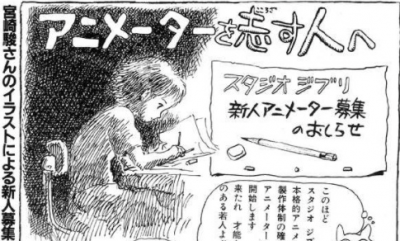 宮崎駿さんのイラストによる新人募集
アニメーターを志す人へ
スタジオ ジブリ
新人アニメーター募集
のおしらせ
このほど
スタジオ ジ
本格的アニメ
製作体制の確
アニメーター
開始します
来たれ 才能
のある若人よ